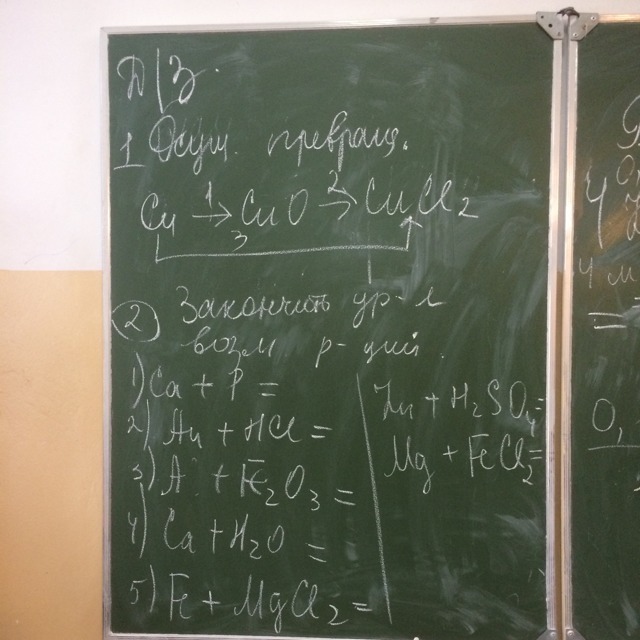 Д/З.
1 Осущ. превращ.
Cu 1→ CuO 2→ CuCl2
3
2 Закончить ур-я
возм р-ций.
1) Ca + P =
2) Au + HCl =
3) A + Fe2O3 =
4) Ca + H2O =
5) Fe + MgCl2 =
Zn + H2SO4=
Mg + FeCl2=